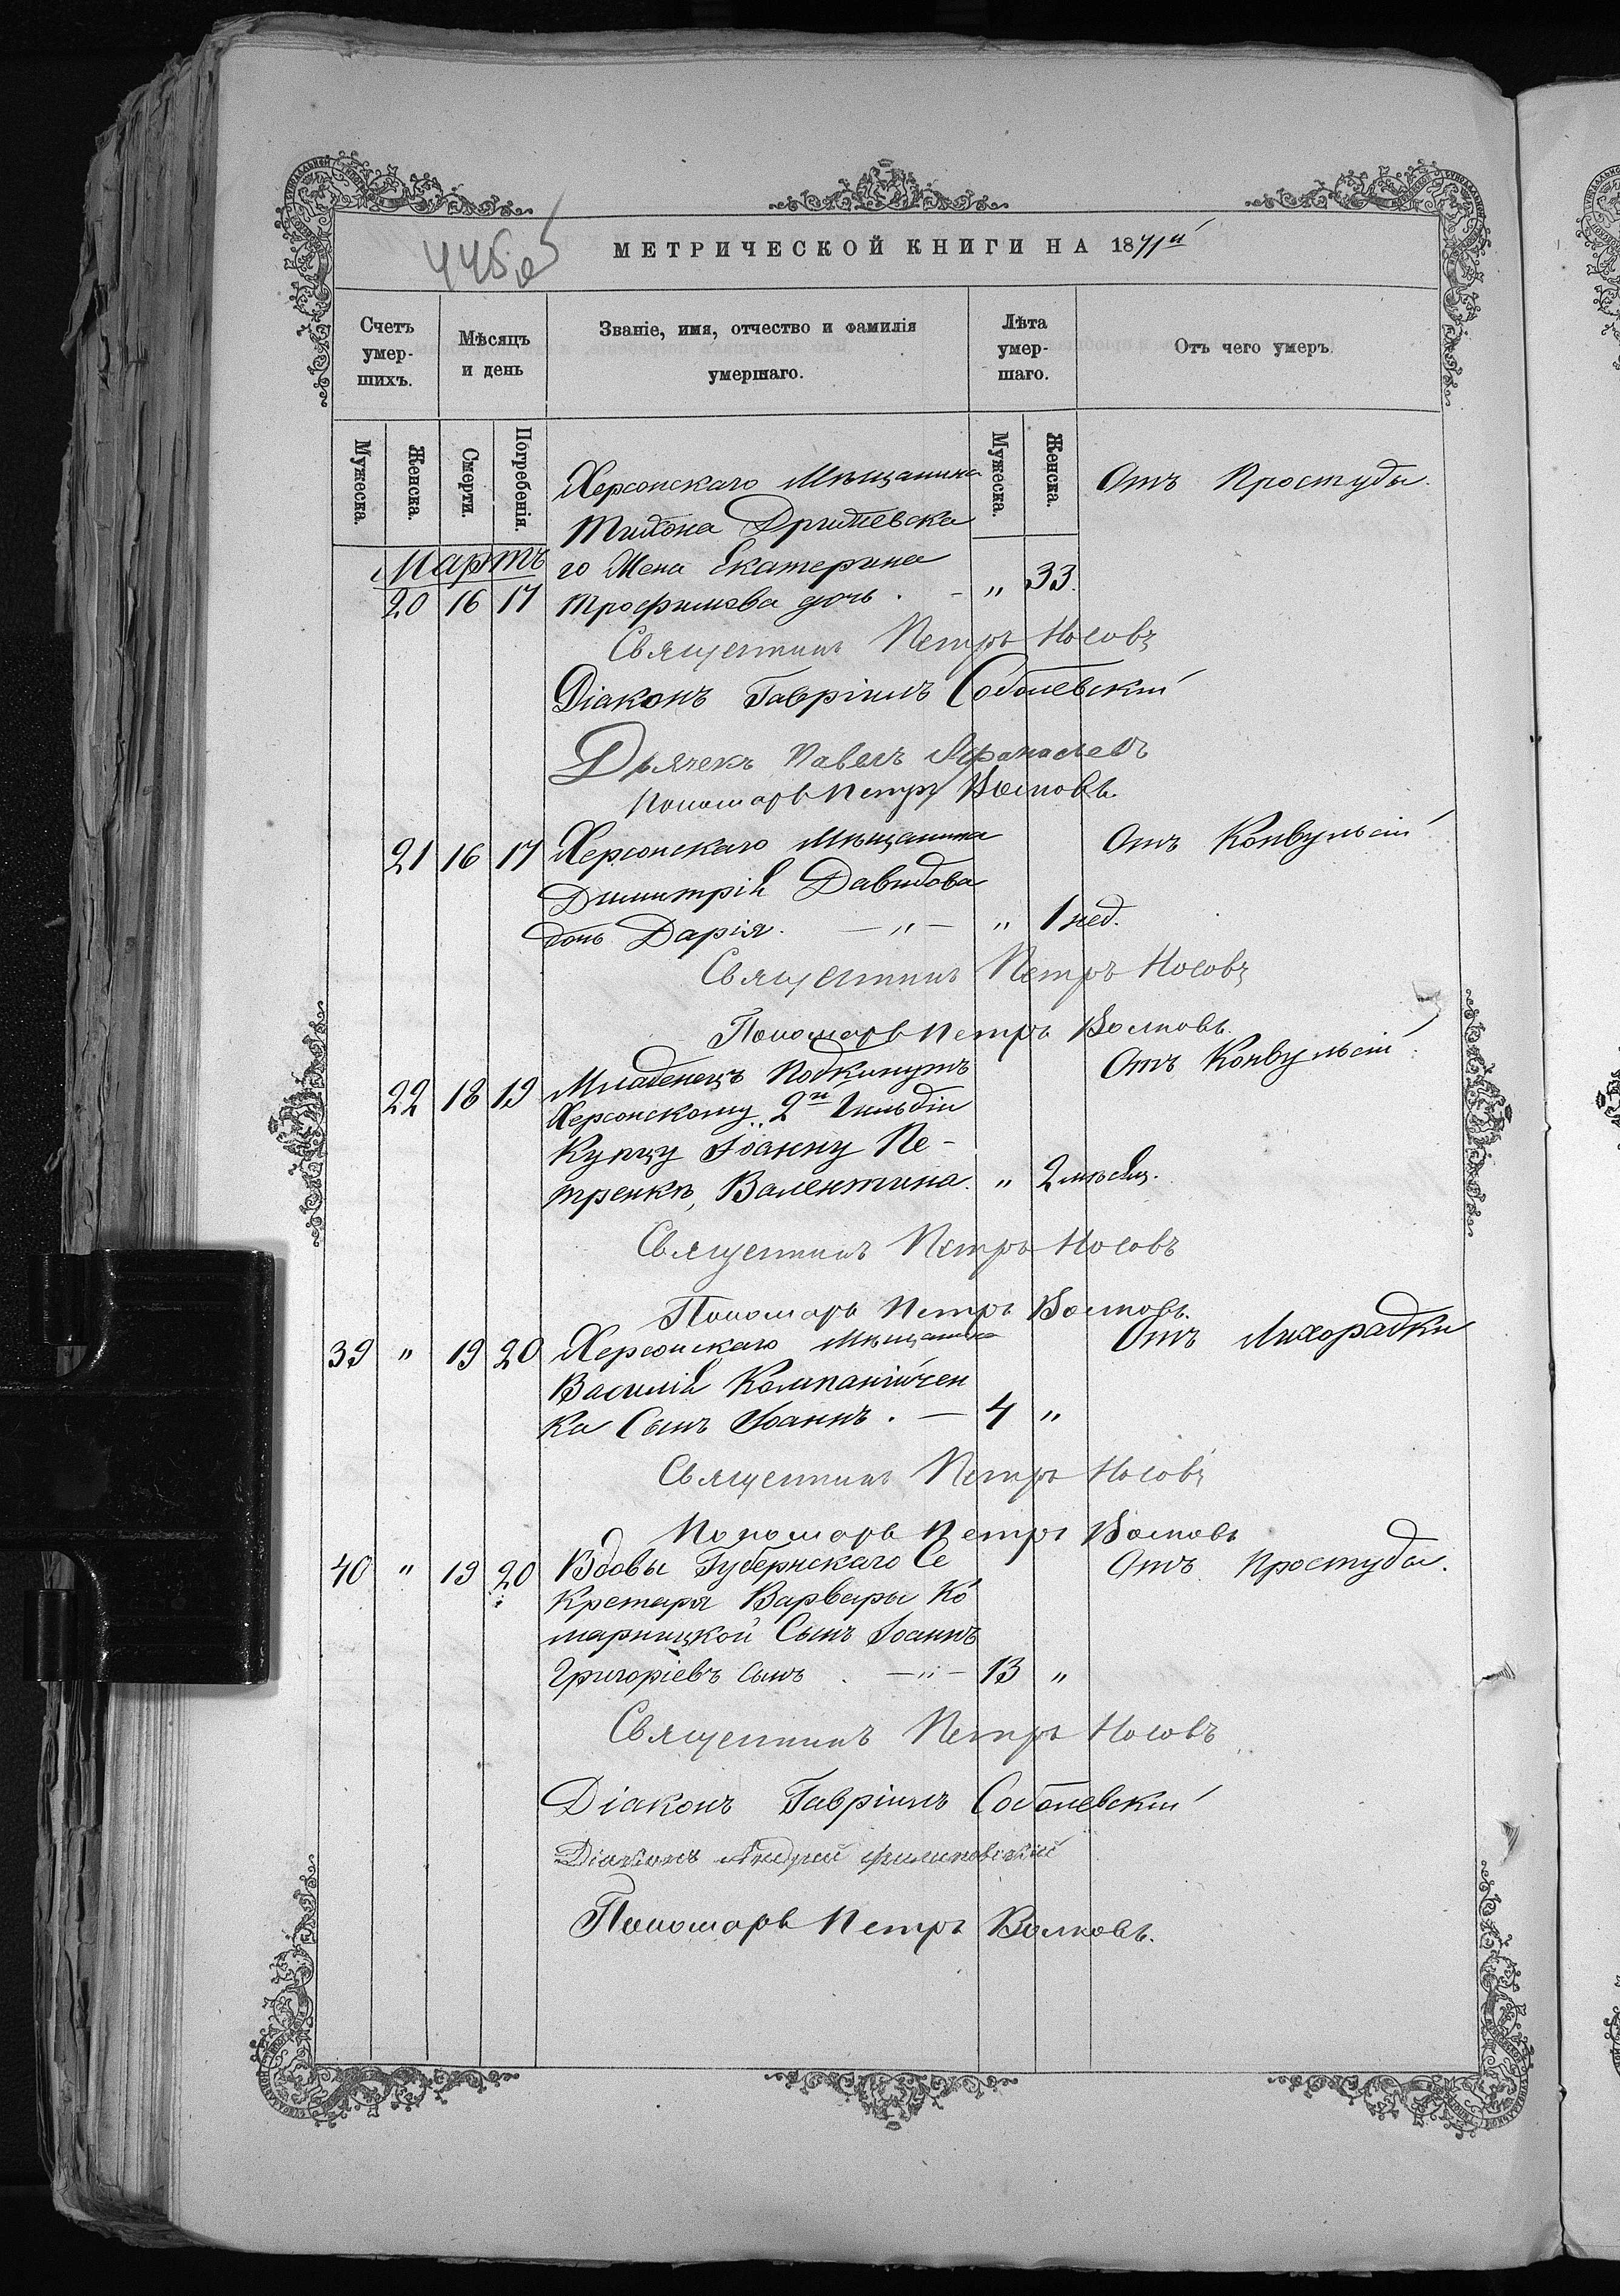 445
МЕТРИЧЕСКОЙ КНИГИ НА 1871й
Счетъ умер- шихъ.
Мѣсяцъ и день
Званіе, имя, отчество и фамилія умершаго.
Лѣта умер- шаго.
Отъ чего умеръ
Мужеска.
Женска.
Смерти.
Погребенія.
Мужеска.
Женска.
Мартъ
Херсонскаго Мѣщанина Отъ Простуды.
Тихона
го Жена Екатерина
20 16 17 Трофимова дочь. - " 33.
Священникъ Петръ Носовъ
Діаконъ Гавріилъ Соболевскій
Дьячекъ Павелъ Афанасьевъ
Пономарь Петръ Волковъ.
21 16 17 Херсонскаго Мѣщанина Отъ Конвульсій
Димитрія Давидова
дочь Дарія. — " — " 1 нед.
Священникъ Петръ Носовъ
Пономарь Петръ Волковъ.
22 18 19 Младенецъ Подкинутъ Отъ Конвульсій.
Херсонскому 2й Гильдіи
Купцу Іоанну Пе-
тренкѣ, Валентина. " 2 мѣсяц.
Священникъ Петръ Носовъ
Пономарь Петръ Волковъ.
39 " 19 20 Херсонскаго Мѣщанина Отъ Лихорадки
Василія Компанійчен
ка Сынъ Іоаннъ. — 4 "
Священникъ Петръ Носовъ
Пономарь Петръ Волковъ
40 " 19 20 Вдовы Губернскаго Се Отъ Простуды.
кретаря Варвары Ко
марницкой Сынъ Іоаннъ
Григоріевъ сынъ . — " — 13 "
Священникъ Петръ Носовъ
Діаконъ Гавріилъ Соболевскій
Діаконъ Андрей
Пономарь Петръ Волковъ.